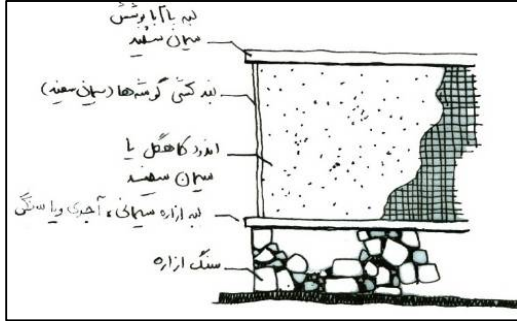 لبه بام با پوشش
سیمان سفید
بند کشی گوشه‌ها (سیمان سفید)
اندود کاهگل یا
سیمان سفید
لبه ازاره سیمانی، آجری و یا سنگی
سنگ ازاره